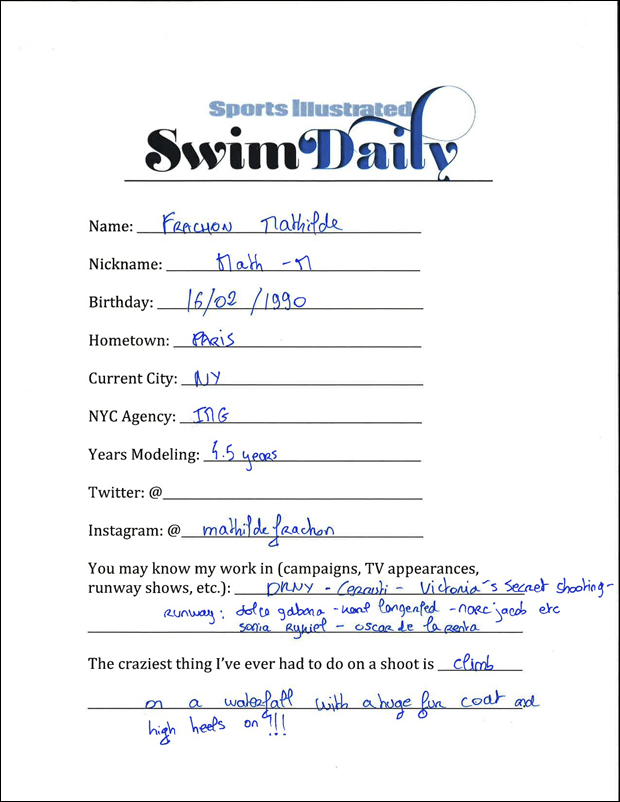 Sports Illustrated
Swim Daily
Name: FRACHON Mathilde
Nickname: Math - M
Birthday: 16/02/1990
Hometown: PARIS
Current City: NY
NYC Agency: IMG
Years Modeling: 4.5 years
Twitter: @
Instagram: @ mathildefrachon
You may know my work in (campaigns, TV appearances,
runway shows, etc.): DKNY - - Victoria's Secret shooting -
RUNWAY: dolce gabana - - marc jacob etc
sonia Rykiel - oscar de la renta
The craziest thing I've ever had to do on a shoot is climb
on a waterfall with a huge fur coat and
high heels on !!!